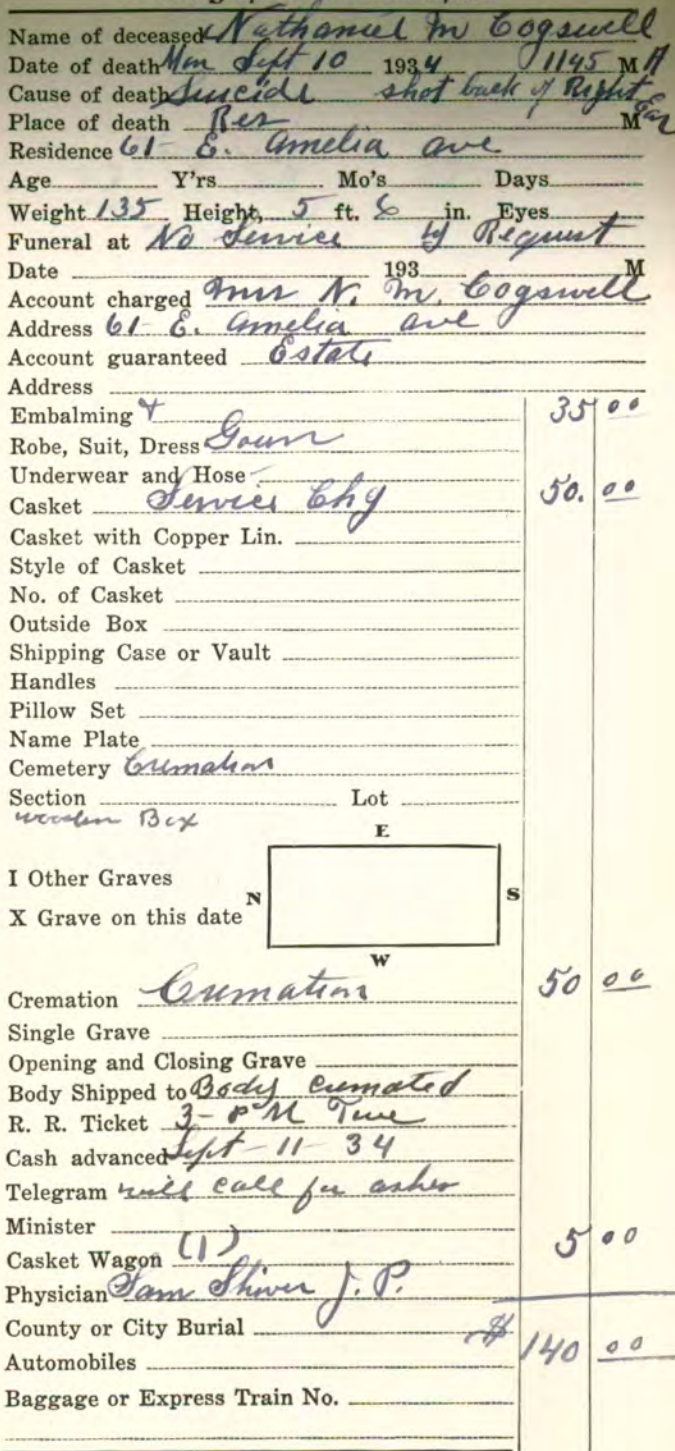 Name of deceased Nathaniel M Cogswell
Date of death Mon Sept 10 1934 1145 M A
Cause of death Suicide shot back of Right Ear
Place of death Res M
Residence 61 E. Amelia ave
Age Y'rs Mo's Days
Weight 135 Height, 5 ft. 6 in. Eyes
Funeral at No Service by Request
Date 193 M
Account charged Mrs N. M. Cogswell
Address 61 E. Amelia ave
Account guaranteed Estate
Address
Embalming & 35 00
Robe, Suit, Dress Gown
Underwear and Hose
Casket Service Chg 50. 00
Casket with Copper Lin.
Style of Casket
No. of Casket
Outside Box
Shipping Case or Vault
Handles
Pillow Set
Name Plate
Cemetery Cremation
Section Lot
wooden Box
E
I Other Graves
N S
X Grave on this date
W
Cremation Cremation 50 00
Single Grave
Opening and Closing Grave
Body Shipped to Body Cremated
R. R. Ticket 3- P M Tue
Cash advanced Sept-11-34
Telegram will call for ashes
Minister
Casket Wagon (1) 5 00
Physician Sam Shiver J. P.
County or City Burial
$ 140 00
Automobiles
Baggage or Express Train No.